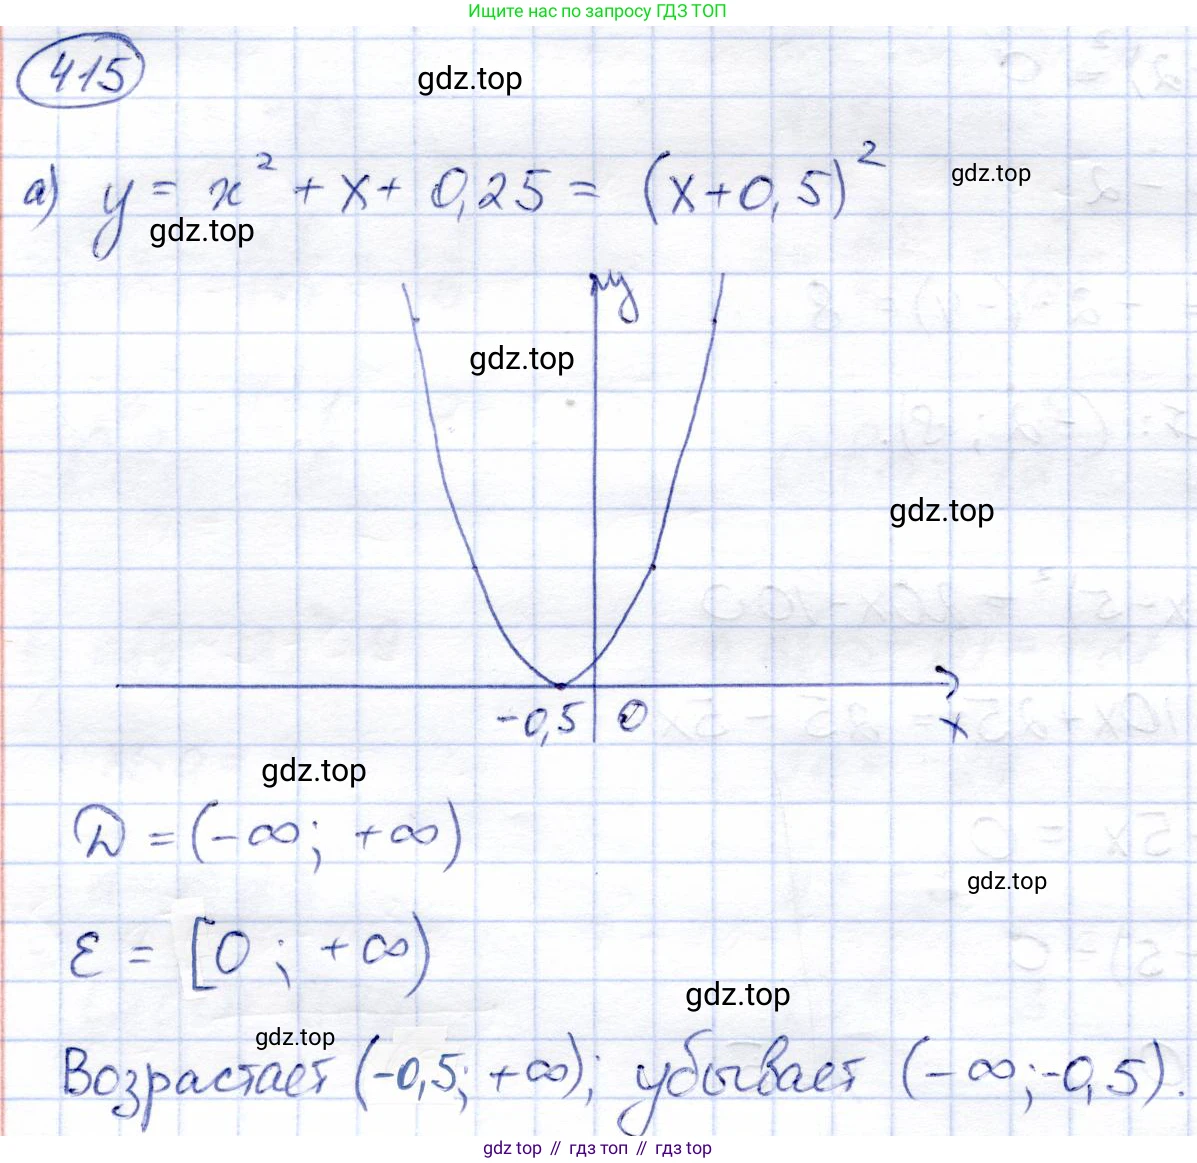 Ищите нас по запросу ГДЗ ТОП
415
gdz.top
а) y = x² + x + 0,25 = (x+0,5)²
gdz.top
gdz.top
y
gdz.top
gdz.top
-0,5 0 x
gdz.top
D = (-∞; +∞)
gdz.top
E = [0 ; +∞)
gdz.top
gdz.top
Возрастает (-0,5; +∞); убывает (-∞;-0,5).
gdz.top // гдз топ // гдз top